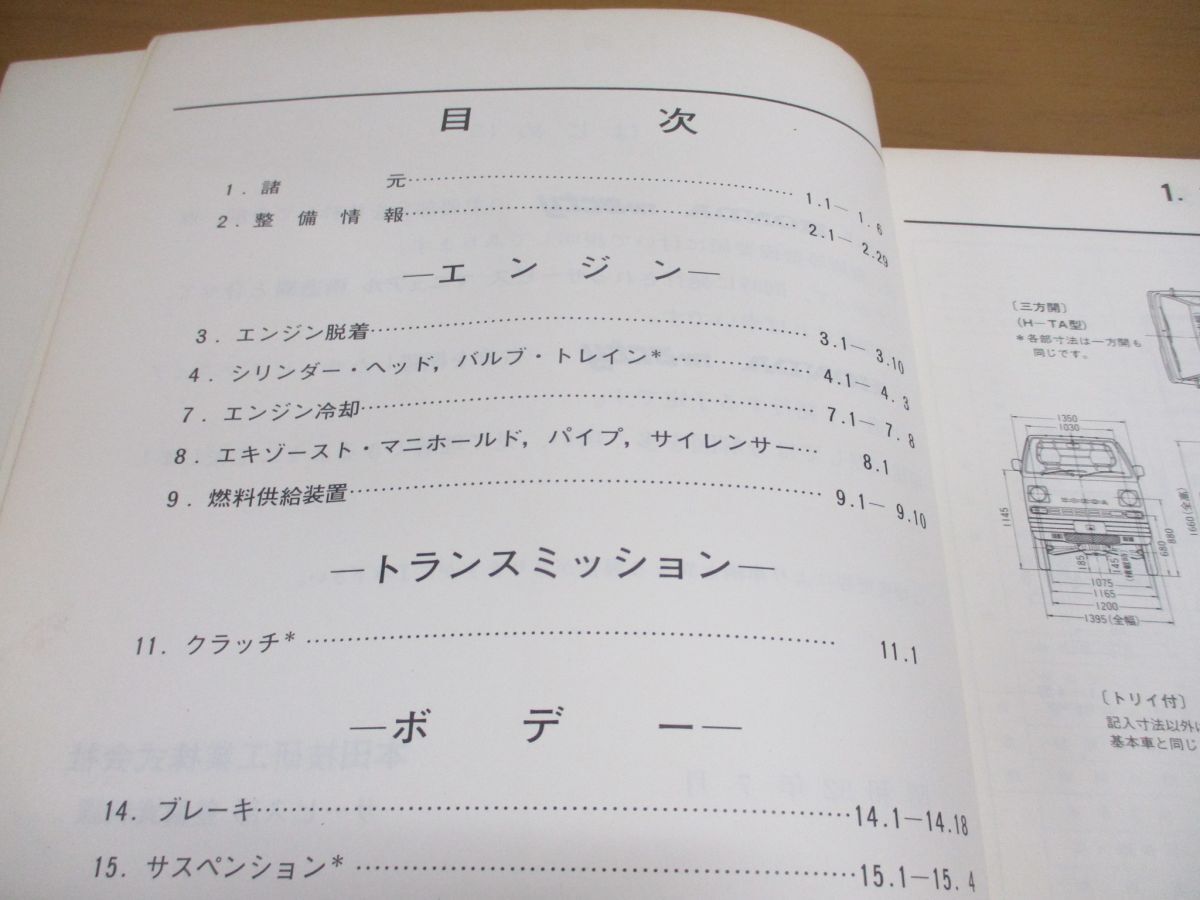 目次
1. 諸元…………1.1— 1.6
2. 整備情報…………2.1— 2.29
—エンジン—
3. エンジン脱着…………3.1— 3.10
4. シリンダー・ヘッド, バルブ・トレイン*…………4.1— 4.3
7. エンジン冷却…………7.1— 7.8
8. エキゾースト・マニホールド, パイプ, サイレンサー… 8.1
9. 燃料供給装置…………9.1— 9.10
—トランスミッション—
11. クラッチ*………… 11.1
—ボデー—
14. ブレーキ…………14.1—14.18
15. サスペンション*…………15.1—15.4
1.
〔三方開〕
(H-TA型)
*各部寸法は一方開も
同じです。
1350
1030
1145
HONDA
1660(全高)
680
880
185
145
(積載時)
1075
1165
1200
1395(全幅)
〔トリイ付〕
記入寸法以外
基本車と同じ